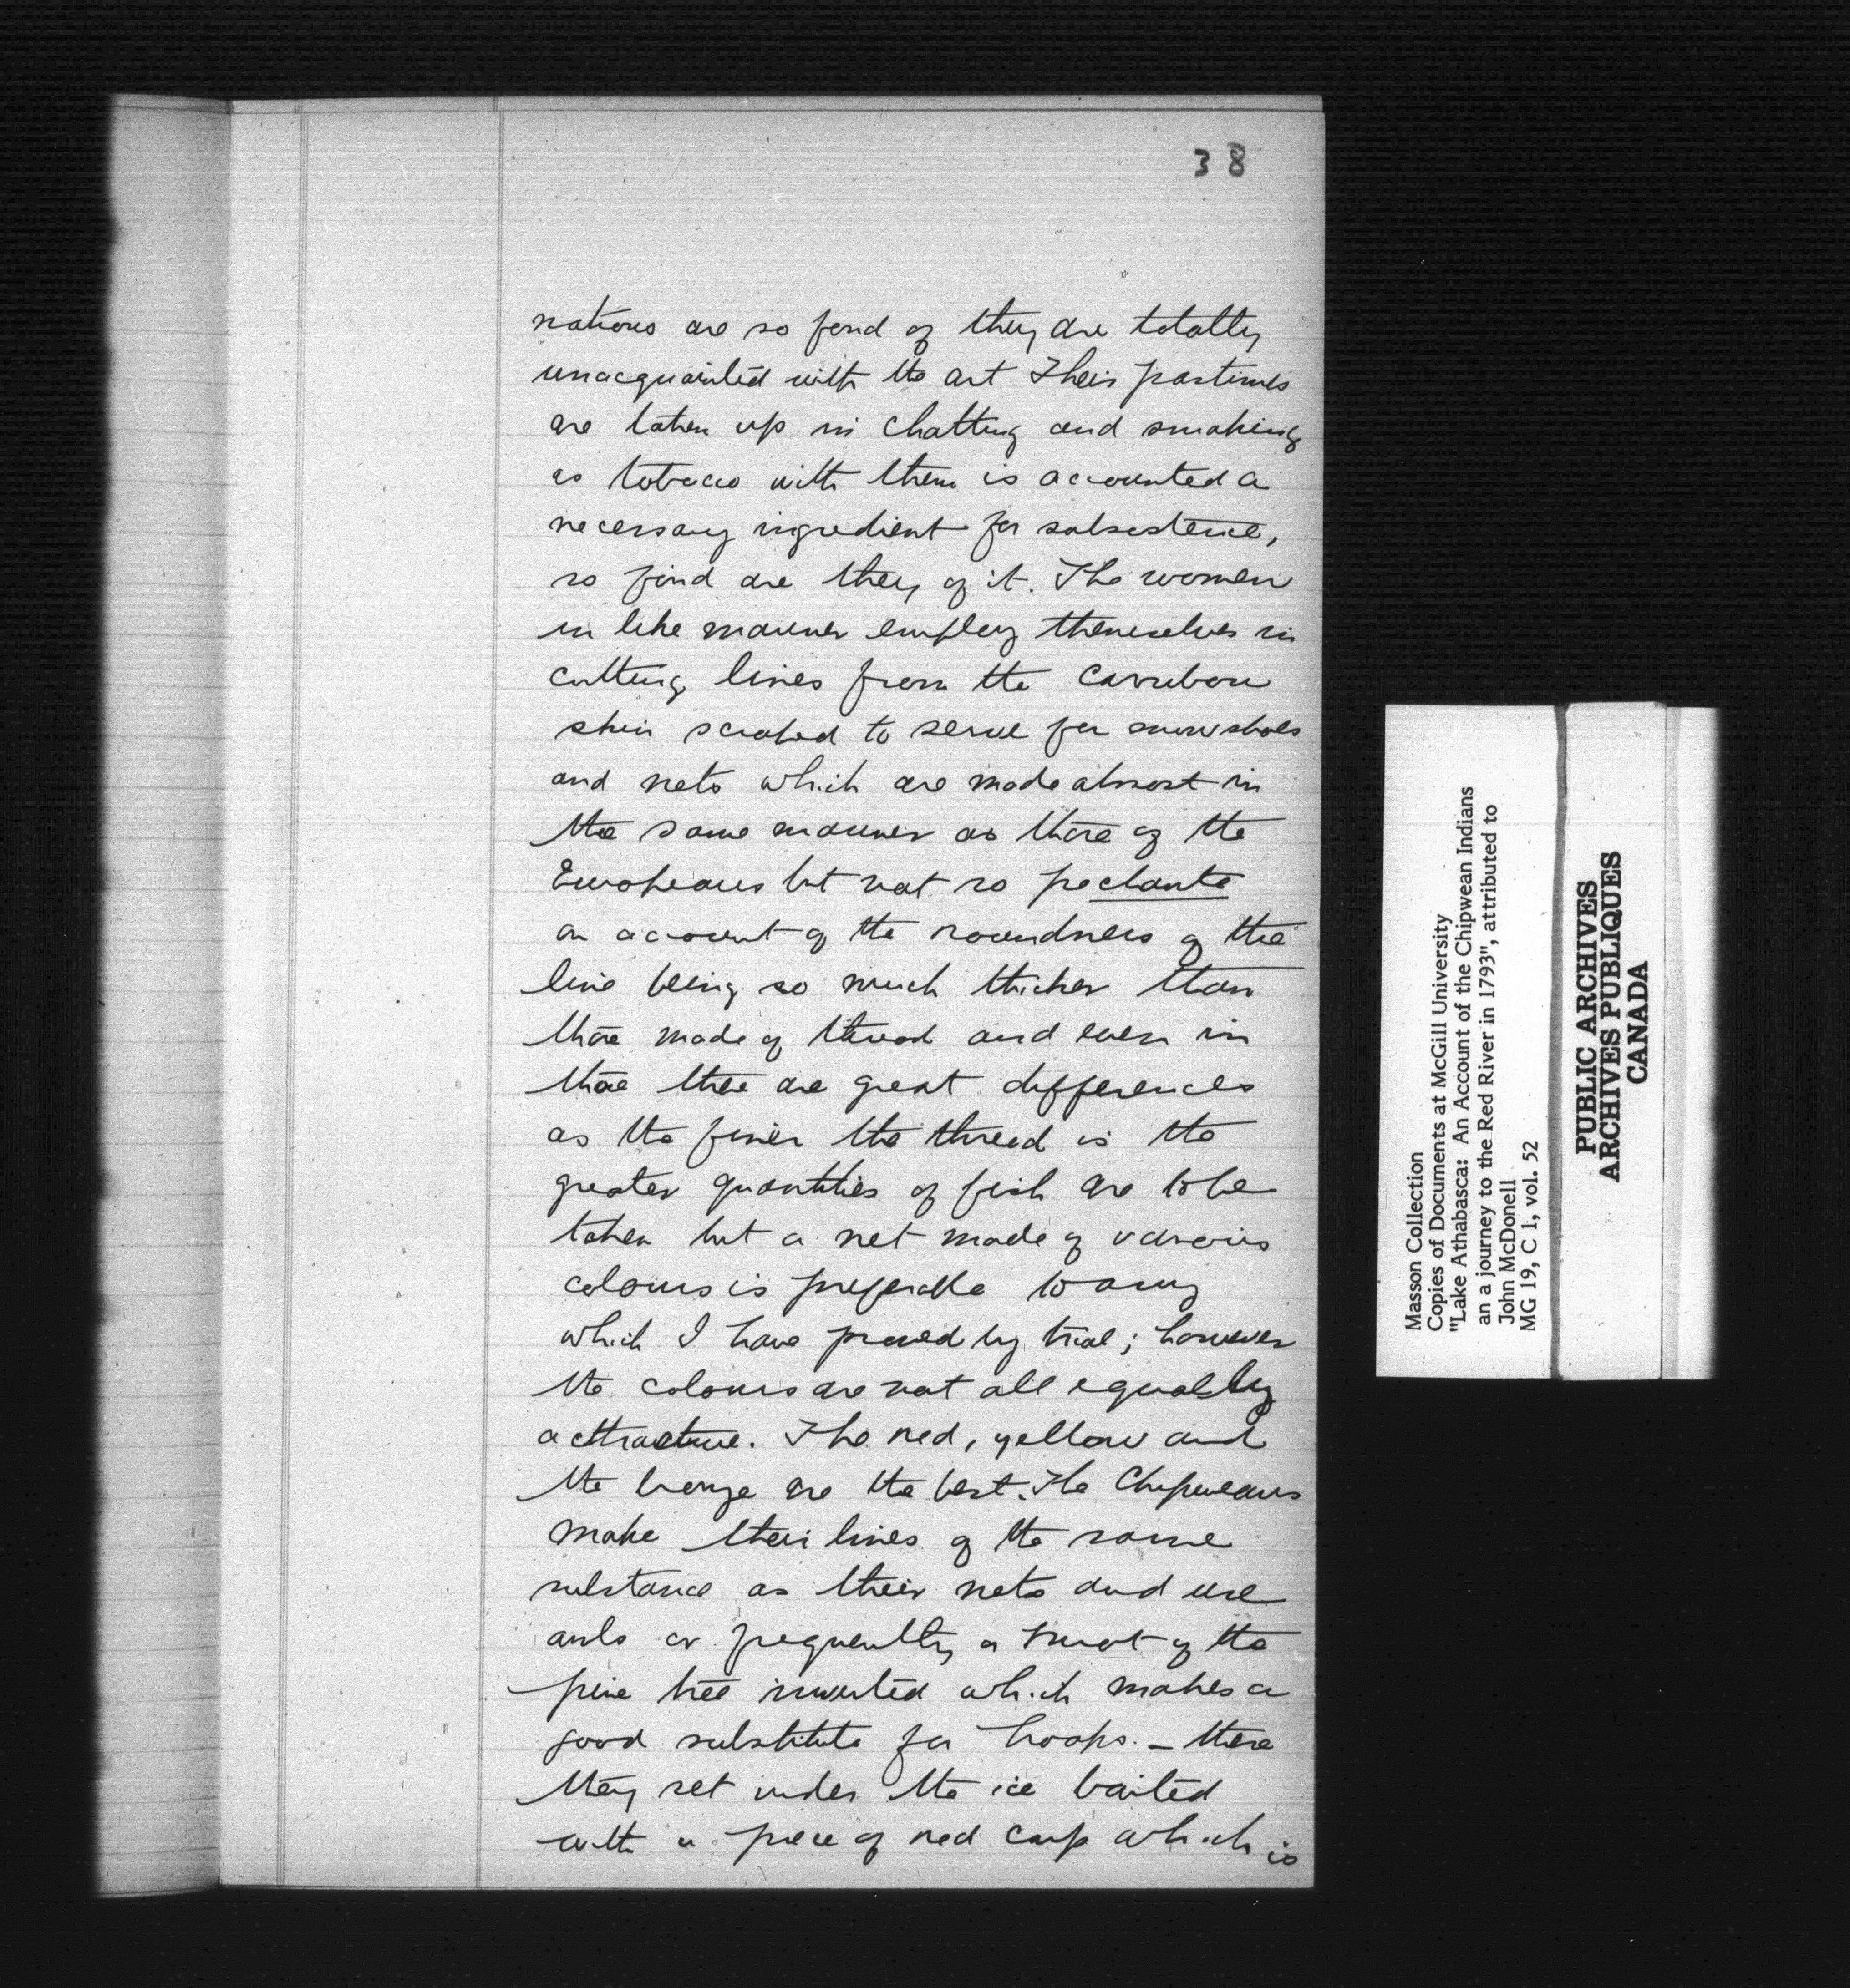 38
nations are so fond of they are totally
unacquainted with the art Their pastimes
are taken up in chatting and smoking
as tobacco with them is accounted a
necessary ingredient for subsistence,
so fond are they of it. The women
in like manner employ themselves in
cutting lines from the Carribou
skin scraped to serve for snowshoes
and nets which are made almost in
the same manner as those of the
Europeans but not so pechante
on account of the roundness of the
line being so much thicker than
those made of thread and even in
those there are great differences
as the finer the thread is the
greater quantities of fish are to be
taken but a net made of various
colours is preferable to any
which I have proved by trial; however
the colours are not all equally
attractive. The red, yellow and
the are the best. The Chipweans
make their lines of the same
substance as their nets and use
or frequently a of the
pine tree inverted which makes a
good substitute for hooks. - these
they set under the ice baited
with a piece of red carp which is
Masson Collection
Copies of Documents at McGill University
"Lake Athabasca: An Account of the Chipwean Indians
an a journey to the Red River in 1793", attributed to
John McDonell
MG 19, C 1, vol. 52
PUBLIC ARCHIVES
ARCHIVES PUBLIQUES
CANADA